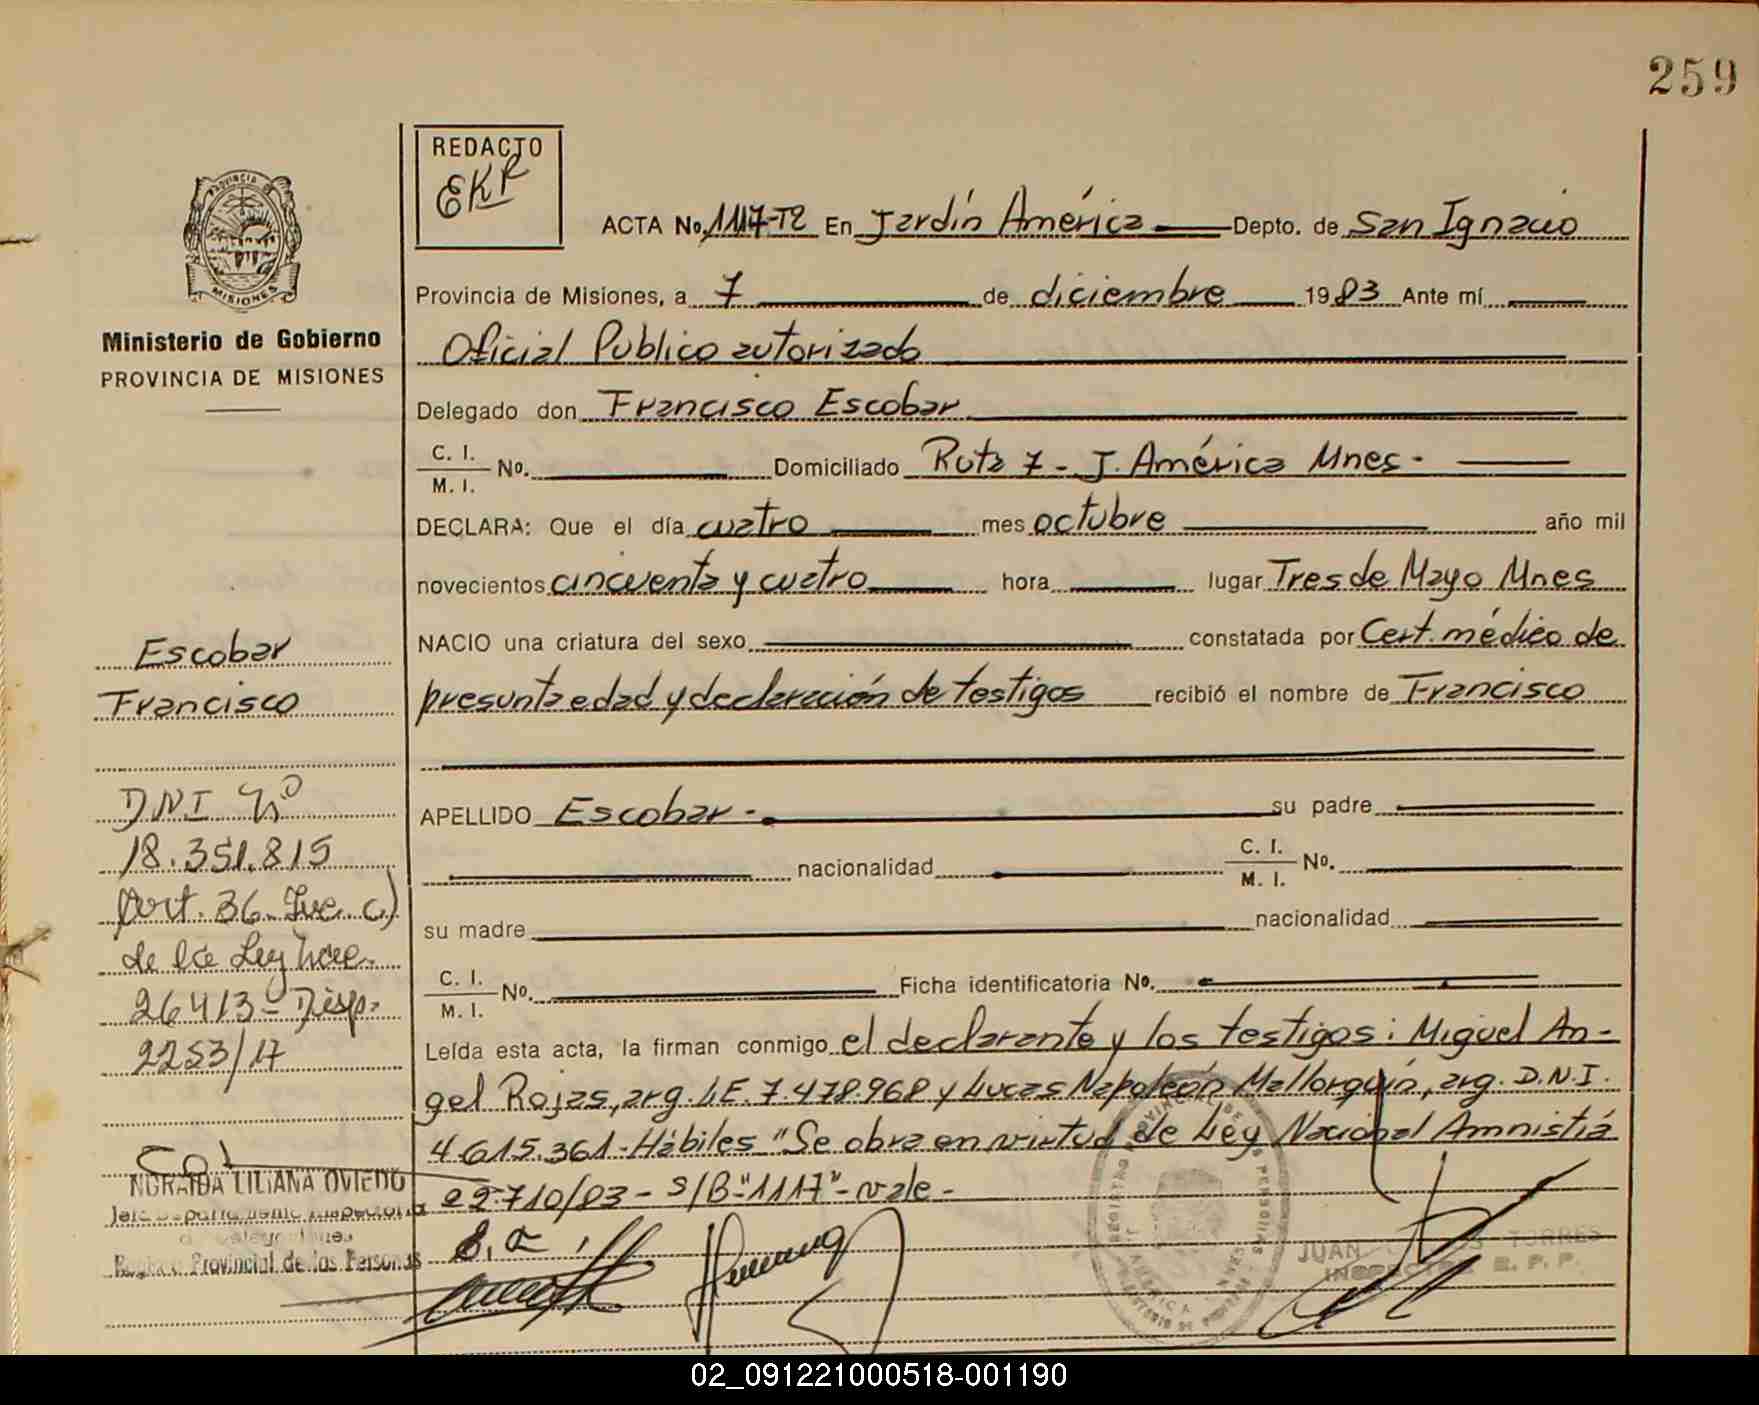 259
REDACTO
EKR
PROVINCIA DE
MISIONES
Ministerio de Gobierno
PROVINCIA DE MISIONES
ACTA No. 1117-T2 En Jardín América Depto. de San Ignacio
Provincia de Misiones, a 7 de diciembre 1983 Ante mí
Oficial Publico autorizado
Delegado don Francisco Escobar
C. I. / M. I. No. Domiciliado Ruta 7 - J. América Mnes.
DECLARA: Que el día cuatro mes octubre año mil
novecientos cincuenta y cuatro hora lugar Tres de Mayo Mnes
NACIO una criatura del sexo constatada por Cert. médico de
presunta edad y declaración de testigos recibió el nombre de Francisco
APELLIDO Escobar.- su padre
nacionalidad C. I. / M. I. No.
su madre nacionalidad
C. I. / M. I. No. Ficha identificatoria No.
Leída esta acta, la firman conmigo el declarante y los testigos: Miguel An-
gel Rojas, arg. L.E. 7.478.968 y Lucas Napoleón Mallorquín, arg. D.N.I.
4.615.361- Hábiles "Se obra en virtud de Ley Nacional Amnistiá
22.710/83 - S/B-"1117"- vale -
Escobar
Francisco
DNI Nº
18.351.815
(Art. 36 Inc. c)
de la Ley Nac.
26413 - Disp.
2253/17
NORAIDA LILIANA OVIEDO
Jefe Departamento Inspectoria
Registro Provincial de las Personas
JUAN TORRES
INSPECTOR R. P. P.
02_091221000518-001190